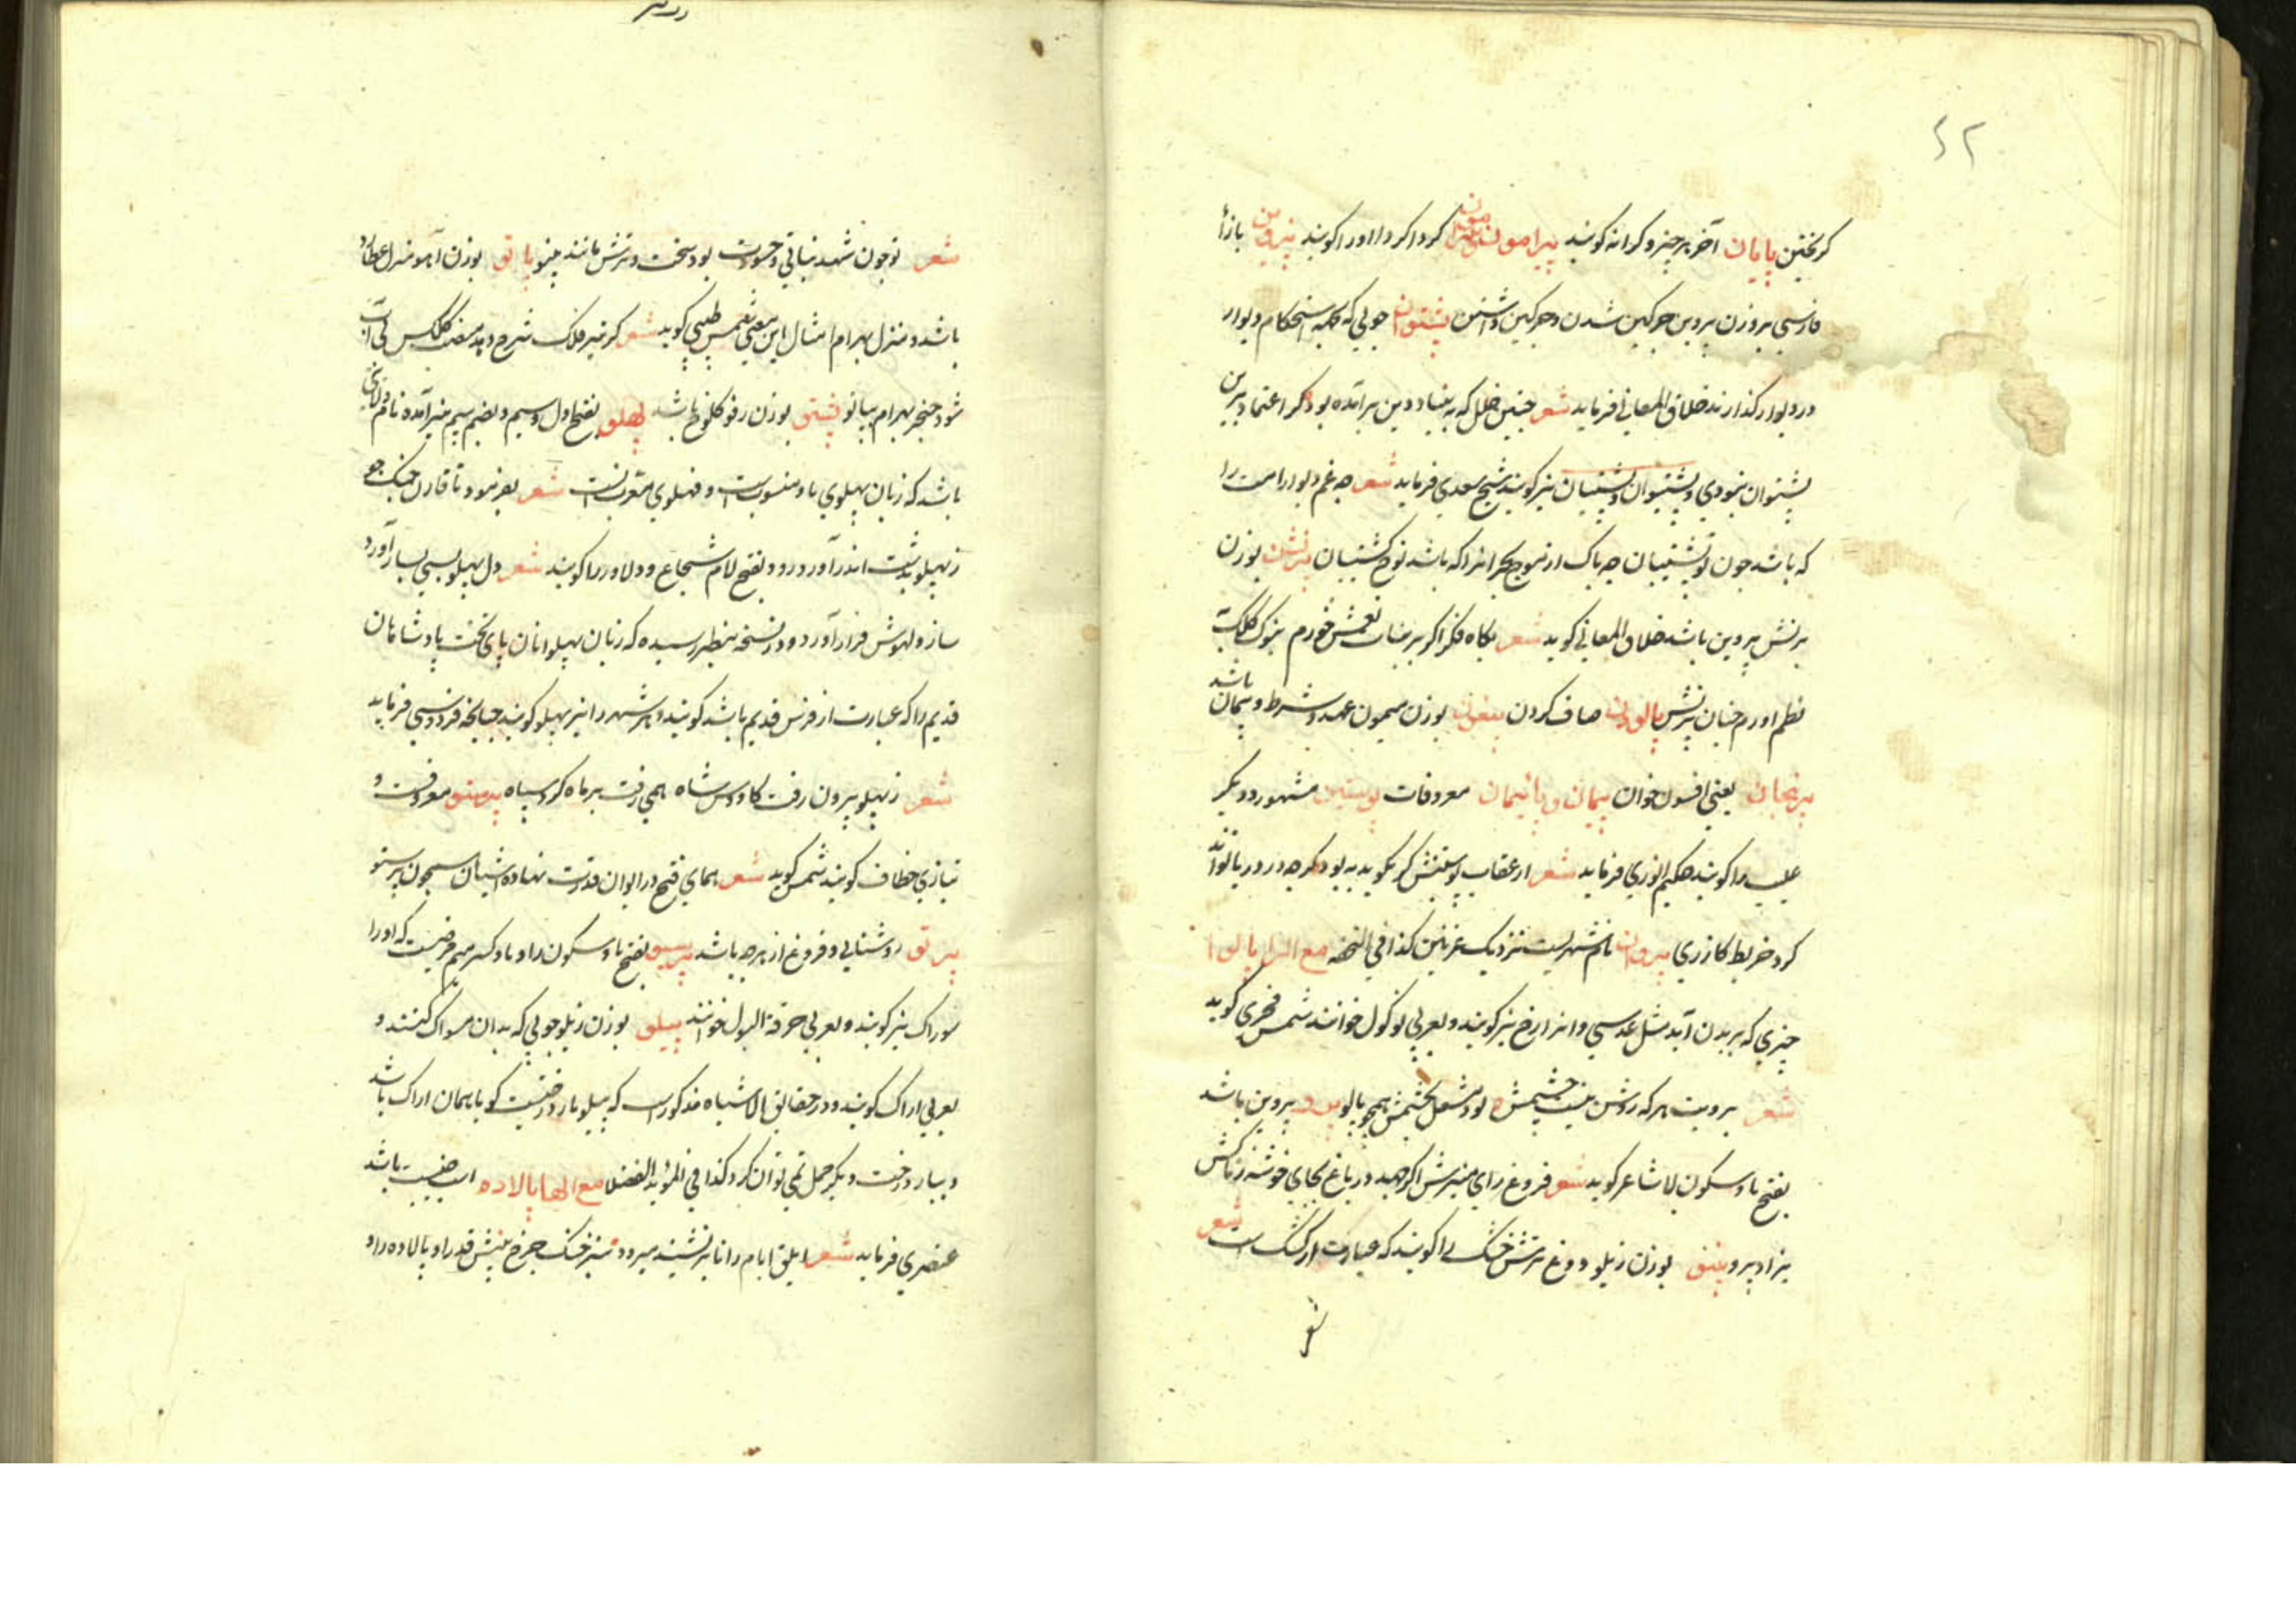 ۴۲
کریختن پایان آخر هر چیز و کرانه کویند پیرامون کرداکرد را اورا کویند
فارسی بر وزن پروین چرکین شدن و چرکین داشتن پشتوان چوبی که بجهه استحکام دیوار
در دیوار کذارند خلاق المعانی فرماید شعر چنین خلل که به بنیاد دین برآمده بود کر اعتماد برین
پشتوان نبودی و پشتیوان و پشتیبان نیز کویند شیخ سعدی فرماید شعر چه غم دیوار امت را
که باشد چون تو پشتیبان چه باک از موج بحر انرا که باشد نوح کشتیبان پرنش بوزن
برنش پروین باشد خلاق المعانی کوید شعر بکاه فکر اکر بر بنات نعش خورم بنوک کلک
نظم اورم چنان پرنش پالودن صاف کردن پیمون بوزن میمون عهد و شرط و پیمان باشد
یعنی افسون خوان پیمان و پاییمان معروفات پوستین مشهور و دیکر
عیب را کویند حکیم انوری فرماید شعر از عقاب پوستینش کر نکوید به بود کرچه در دریا تواند
کرد خربط کازری پروان نام شهریست نزدیک غزنین کذا فی النسخه مع الواو پالو
چیزی که بر بدن آید مثل عدسی و انرا زخ نیز کویند و بعربی ثولول خوانند شمس فخری کوید
شعر برویت هر که روشن نیست چشمش بود مشعل بچشمش همچو پالو پرو پروین باشد
بفتح با و سکون را شاعر کوید شعر فروغ رای منیرش اکر جهد در باغ بجای خوشه ز تاکش
بزاد پرو پینو بوزن نیلو دوغ ترش خشک را کویند که عبارت از کشک است شعر
تو
شعر تو چون شهد نباتی و حسودت بود سخت و ترش مانند پینو پاتو بوزن آهو منزل عطارد
باشد و منزل بهرام مثال این معنی شمس طبسی کوید شعر کر تیر فلک شرح دهد صفت کلکش کی آب
شود خنجر بهرام بپاتو پشتو بوزن رفو کلوخ باشد پهلو بفتح اول و سیم و بضم سیم نیز آمده نام ولایتی
باشد که زبان پهلوی با و منسوبست و فهلوی معرب انست شعر بفرمود تا قارن جنک جو
ز پهلو بدشت اندر آورد رو و بفتح لام شجاع و دلاور را کویند شعر دل پهلو بسی بساز آورد
ساز و لهوش فراز آورد و در نسخه بنظر رسیده که زبان پهلوانان پای تخت پادشاهان
قدیم را که عبارت از فرس قدیم باشد کویند و هر شهر را نیز پهلو کویند چنانچه فردوسی فرماید
شعر ز پهلو برون رفت کاووس شاه همی رفت بر ماه کرد سپاه پرستو معروفست و
بتازی خطاف کویند شمس کوید شعر همای فتح در ایوان قدرت نهاده اشیان همچون پرستو
پرتو روشنایی و فروغ از هر چه باشد پرمیو بفتح با و سکون را و با و کسر میم مرضیست که اورا
سوزاک نیز کویند و بعربی حرقة البول خوانند پیلو بوزن نیلو چوبی که بدان مسواک کنند و
بعربی اراک کویند و در حقایق الاشیاء مذکورست که پیلو بار درختیست کویا همان اراک باشد
و ببار درخت دیکر حمل نمی توان کرد کذا فی مؤید الفضلا مع الها پالاده اسب جنیبت باشد
عنصری فرماید شعر ابلق ایام را تا برنشیند میرود سبز خنک چرخ پیش قدر او پالاده وار